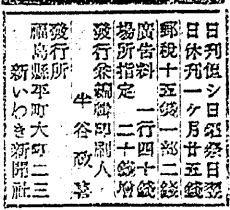 日刊但シ日曜祭日翌
日休刊一ケ月廿五銭
郵税十五銭一部二銭
廣告料一行四十銭
場所指定二十銭増
發行兼編輯印刷人
半谷政
發行所
福島縣平町大町二三
新いわき新聞社